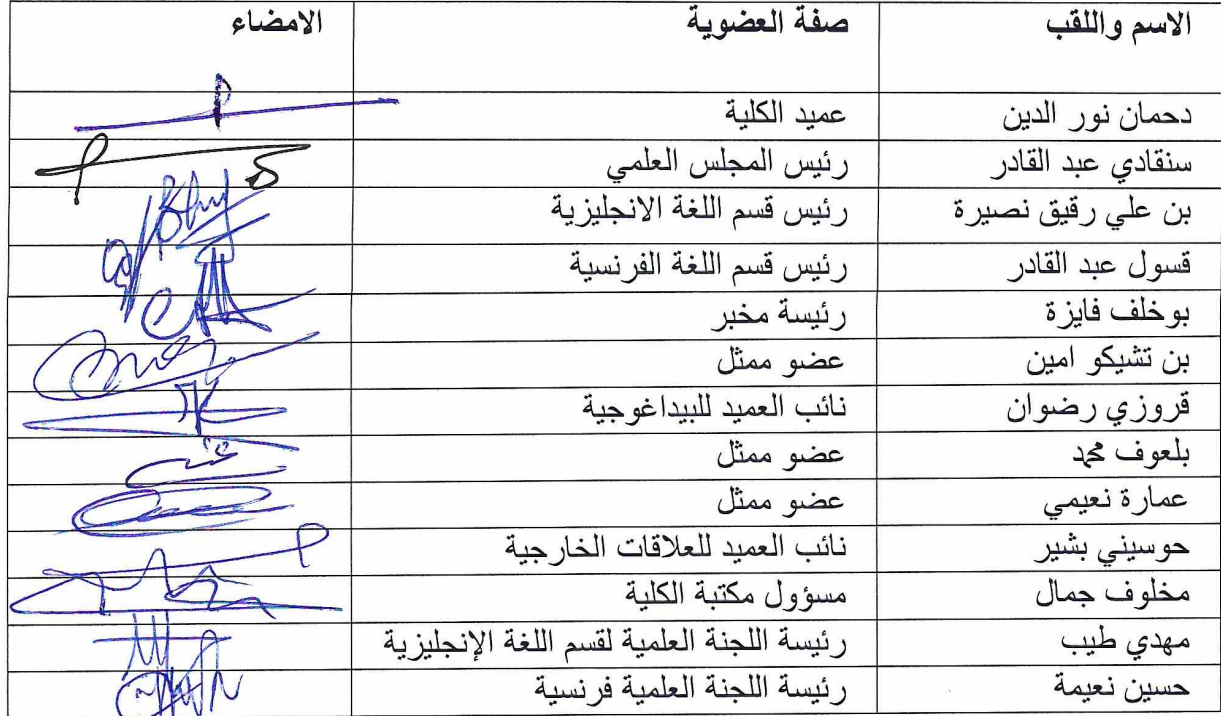 الاسم واللقب صفة العضوية الامضاء
دحمان نور الدين عميد الكلية
سنقادي عبد القادر رئيس المجلس العلمي
بن علي رقيق نصيرة رئيس قسم اللغة الانجليزية
قسول عبد القادر رئيس قسم اللغة الفرنسية
بوخلف فايزة رئيسة مخبر
بن تشيكو امين عضو ممثل
قروزي رضوان نائب العميد للبيداغوجية
بلعوف محمد عضو ممثل
عمارة نعيمي عضو ممثل
حوسيني بشير نائب العميد للعلاقات الخارجية
مخلوف جمال مسؤول مكتبة الكلية
مهدي طيب رئيسة اللجنة العلمية لقسم اللغة الإنجليزية
حسين نعيمة رئيسة اللجنة العلمية فرنسية